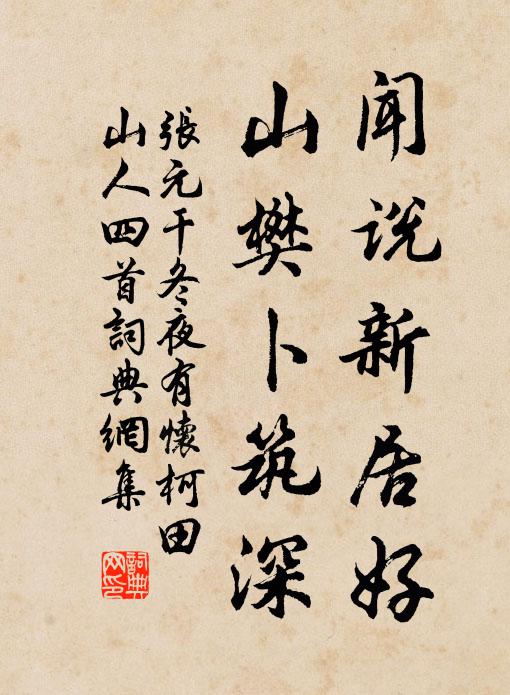 闻说新居好
山樊卜筑深
張元干冬夜有懷柯田
山人四首詞典網集
詞典
网印